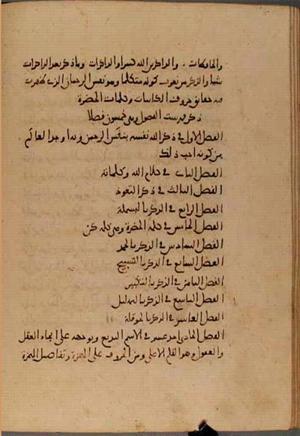 والحافظات والذاكرين الله كثيرا والذاكرات وما ذكر بعد الذاكرات
شيا والذكر من نعوت كونه متكلما وهو نفس الرحمن الذي ظهرت
فيه حقايق حروف الكاينات وكلمات الحضرة
ذكر فهرست الفصول وهي خمسون فصلا
الفصل الاول في ذكر الله نفسه بنفس الرحمن وبه اوجد العالم
من كونه احب ذلك
الفصل الثاني في كلام الله وكلماته
الفصل الثالث في ذكر التعوذ
الفصل الرابع في الذكر بالبسملة
الفصل الخامس في كلمة الحضرة وهي كلمة كن
الفصل السادس في الذكر بالحمد
الفصل السابع في الذكر بالتسبيح
الفصل الثامن في الذكر بالتكبير
الفصل التاسع في الذكر بالتهليل
الفصل العاشر في الذكر بالحوقلة
الفصل الحادي عشر في الاسم البديع وتوجهه على ايجاد العقل
والعقول وهو القلم الاعلى ومن الحروف على الهمزة وتفاصيل الهمزة